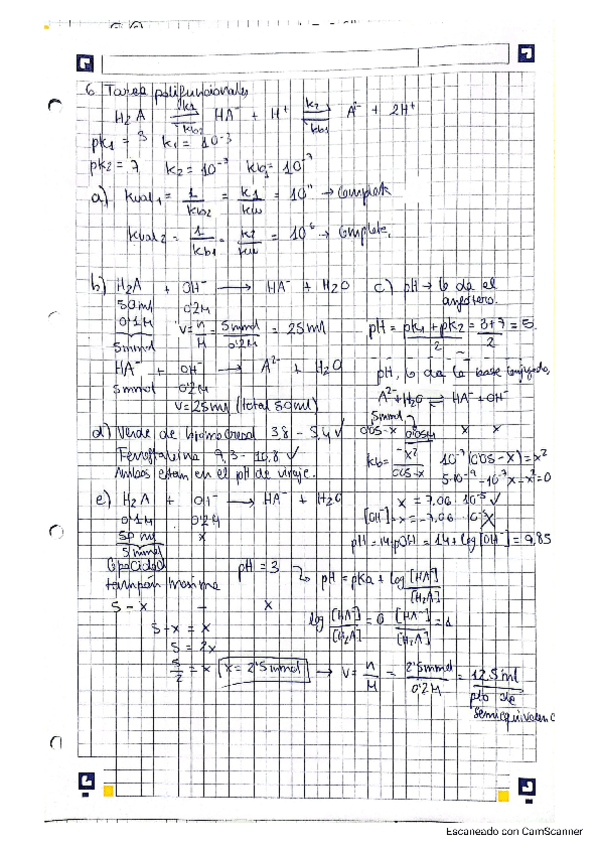 6. Tarea polifuncionales
H₂A ⇌ HA⁻ + H⁺ ⇌ A²⁻ + 2H⁺
k₁ kb₂ k₂ kb₁
pk₁ = 3 k₁ = 10⁻³
pk₂ = 7 k₂ = 10⁻⁷ kb₁ = 10⁻⁷
a) Kval₁ = 1/kb₂ = k₁/kw = 10¹¹ → Completa
Kval₂ = 1/kb₁ = k₂/kw = 10⁶ → Completa.
b) H₂A + OH⁻ → HA⁻ + H₂O
50 ml 0'2M
0'1M V = n/M = 5mmol/0'2M = 25ml
5mmol
HA⁻ + OH⁻ → A²⁻ + H₂O
5mmol 0'2M
V = 25ml (total 50ml)
c) pH → lo da el
anfótero.
pH = pk₁ + pk₂/2 = 3+7/2 = 5
pH, lo da la base conjugada,
A²⁻ + H₂O ⇌ HA⁻ + OH⁻
5mmol
0'05-x x x
0'05M
kb = x²/0'05-x 10⁻⁷(0'05-x) = x²
5·10⁻⁹ - 10⁻⁷x - x² = 0
x = 7,06·10⁻⁵ ✓
[OH⁻] x = -7,06·10⁻⁵ X
pH = 14 - pOH = 14 + log[OH⁻] = 9,85
d) Verde de bromocresol 3,8 - 5,4 ✓
Fenoftaleina 9,3 - 10,8 ✓
Ambos estan en el pH de viraje.
e) H₂A + OH⁻ → HA⁻ + H₂O
0'1M 0'2M
50 ml x
5mmol
Capacidad
tampón maxima
pH = 3 → pH = pKa + log [HA⁻]/[H₂A]
5-x - x
log [HA⁻]/[H₂A] = 0 [HA⁻]/[H₂A] = 1
5-x = x
5 = 2x
5/2 = x x = 2'5mmol → V = n/M = 2'5mmol/0'2M = 12'5ml
pto de
semiequivalenc
Escaneado con CamScanner